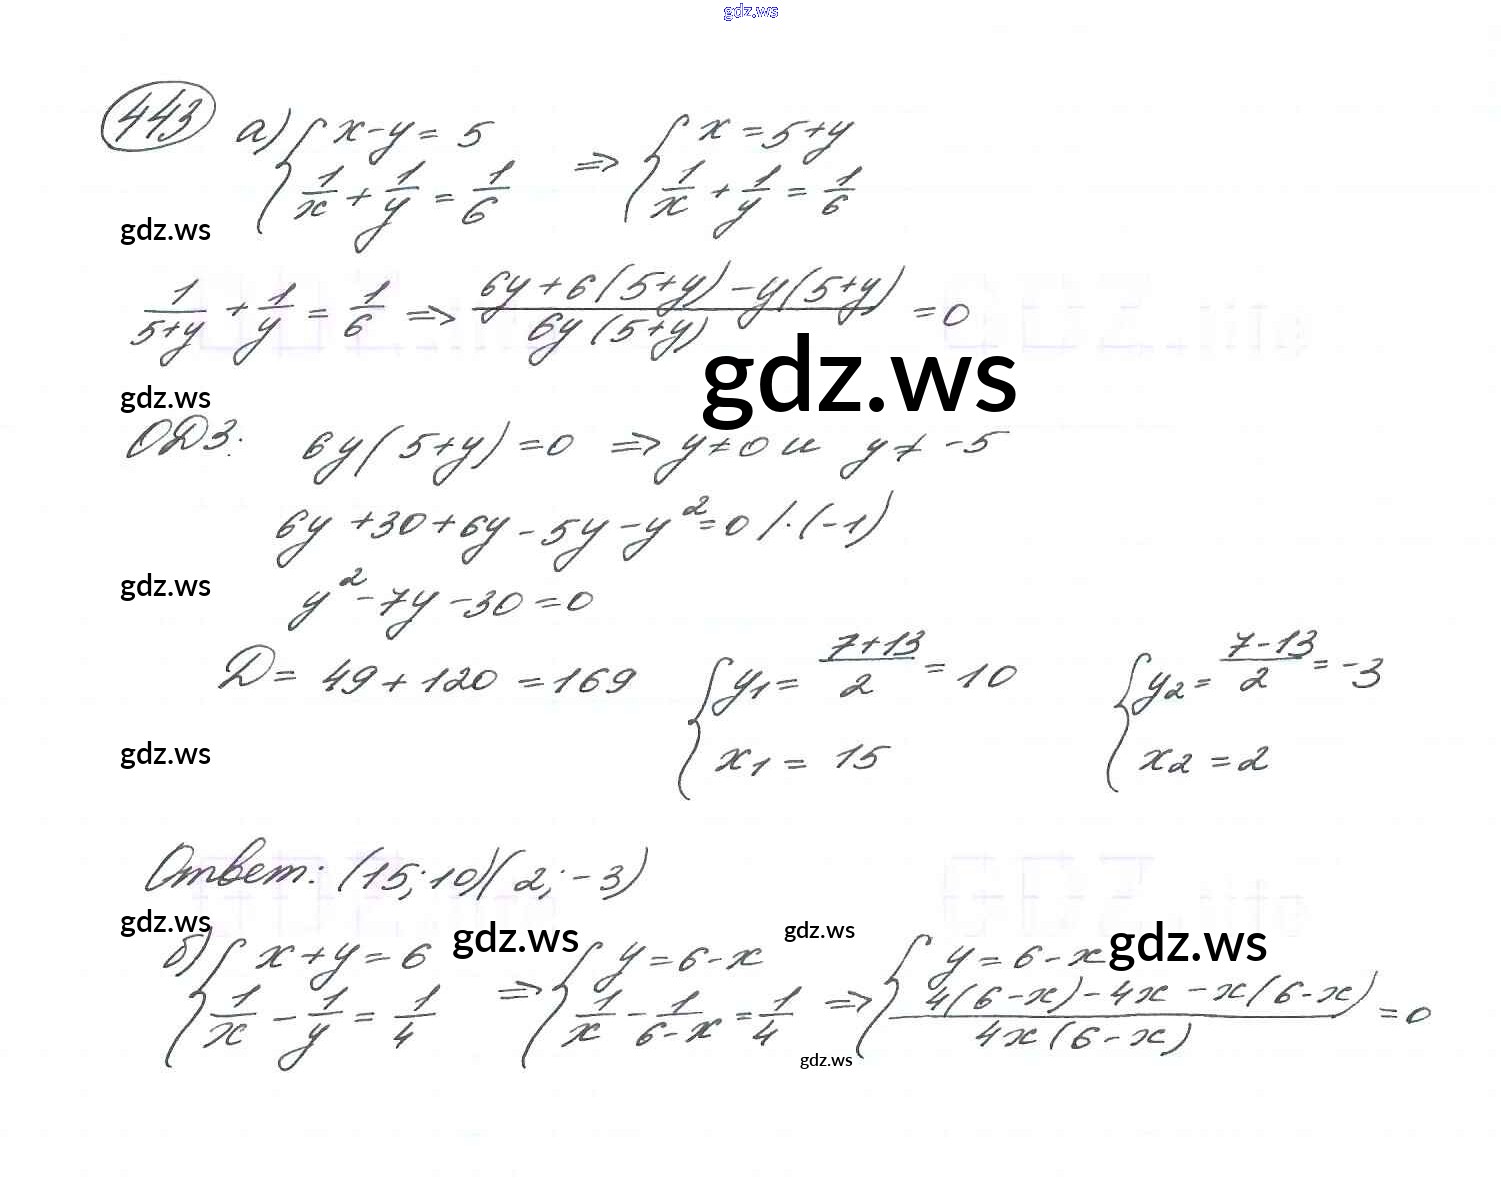 gdz.ws
443 а) { x - y = 5 ; 1/x + 1/y = 1/6 ⇒ { x = 5 + y ; 1/x + 1/y = 1/6
gdz.ws
1/(5+y) + 1/y = 1/6 ⇒ (6y + 6(5+y) - y(5+y)) / (6y(5+y)) = 0
gdz.ws
gdz.ws
ОДЗ: 6y(5+y) = 0 ⇒ y ≠ 0 и y ≠ -5
6y + 30 + 6y - 5y - y² = 0 /·(-1)
gdz.ws
y² - 7y - 30 = 0
D = 49 + 120 = 169 { y₁ = (7+13)/2 = 10 ; x₁ = 15 { y₂ = (7-13)/2 = -3 ; x₂ = 2
gdz.ws
Ответ: (15; 10)(2; -3)
gdz.ws
gdz.ws
gdz.ws
gdz.ws
б) { x + y = 6 ; 1/x - 1/y = 1/4 ⇒ { y = 6 - x ; 1/x - 1/(6-x) = 1/4 ⇒ { y = 6 - x ; (4(6-x) - 4x - x(6-x)) / (4x(6-x)) = 0
gdz.ws